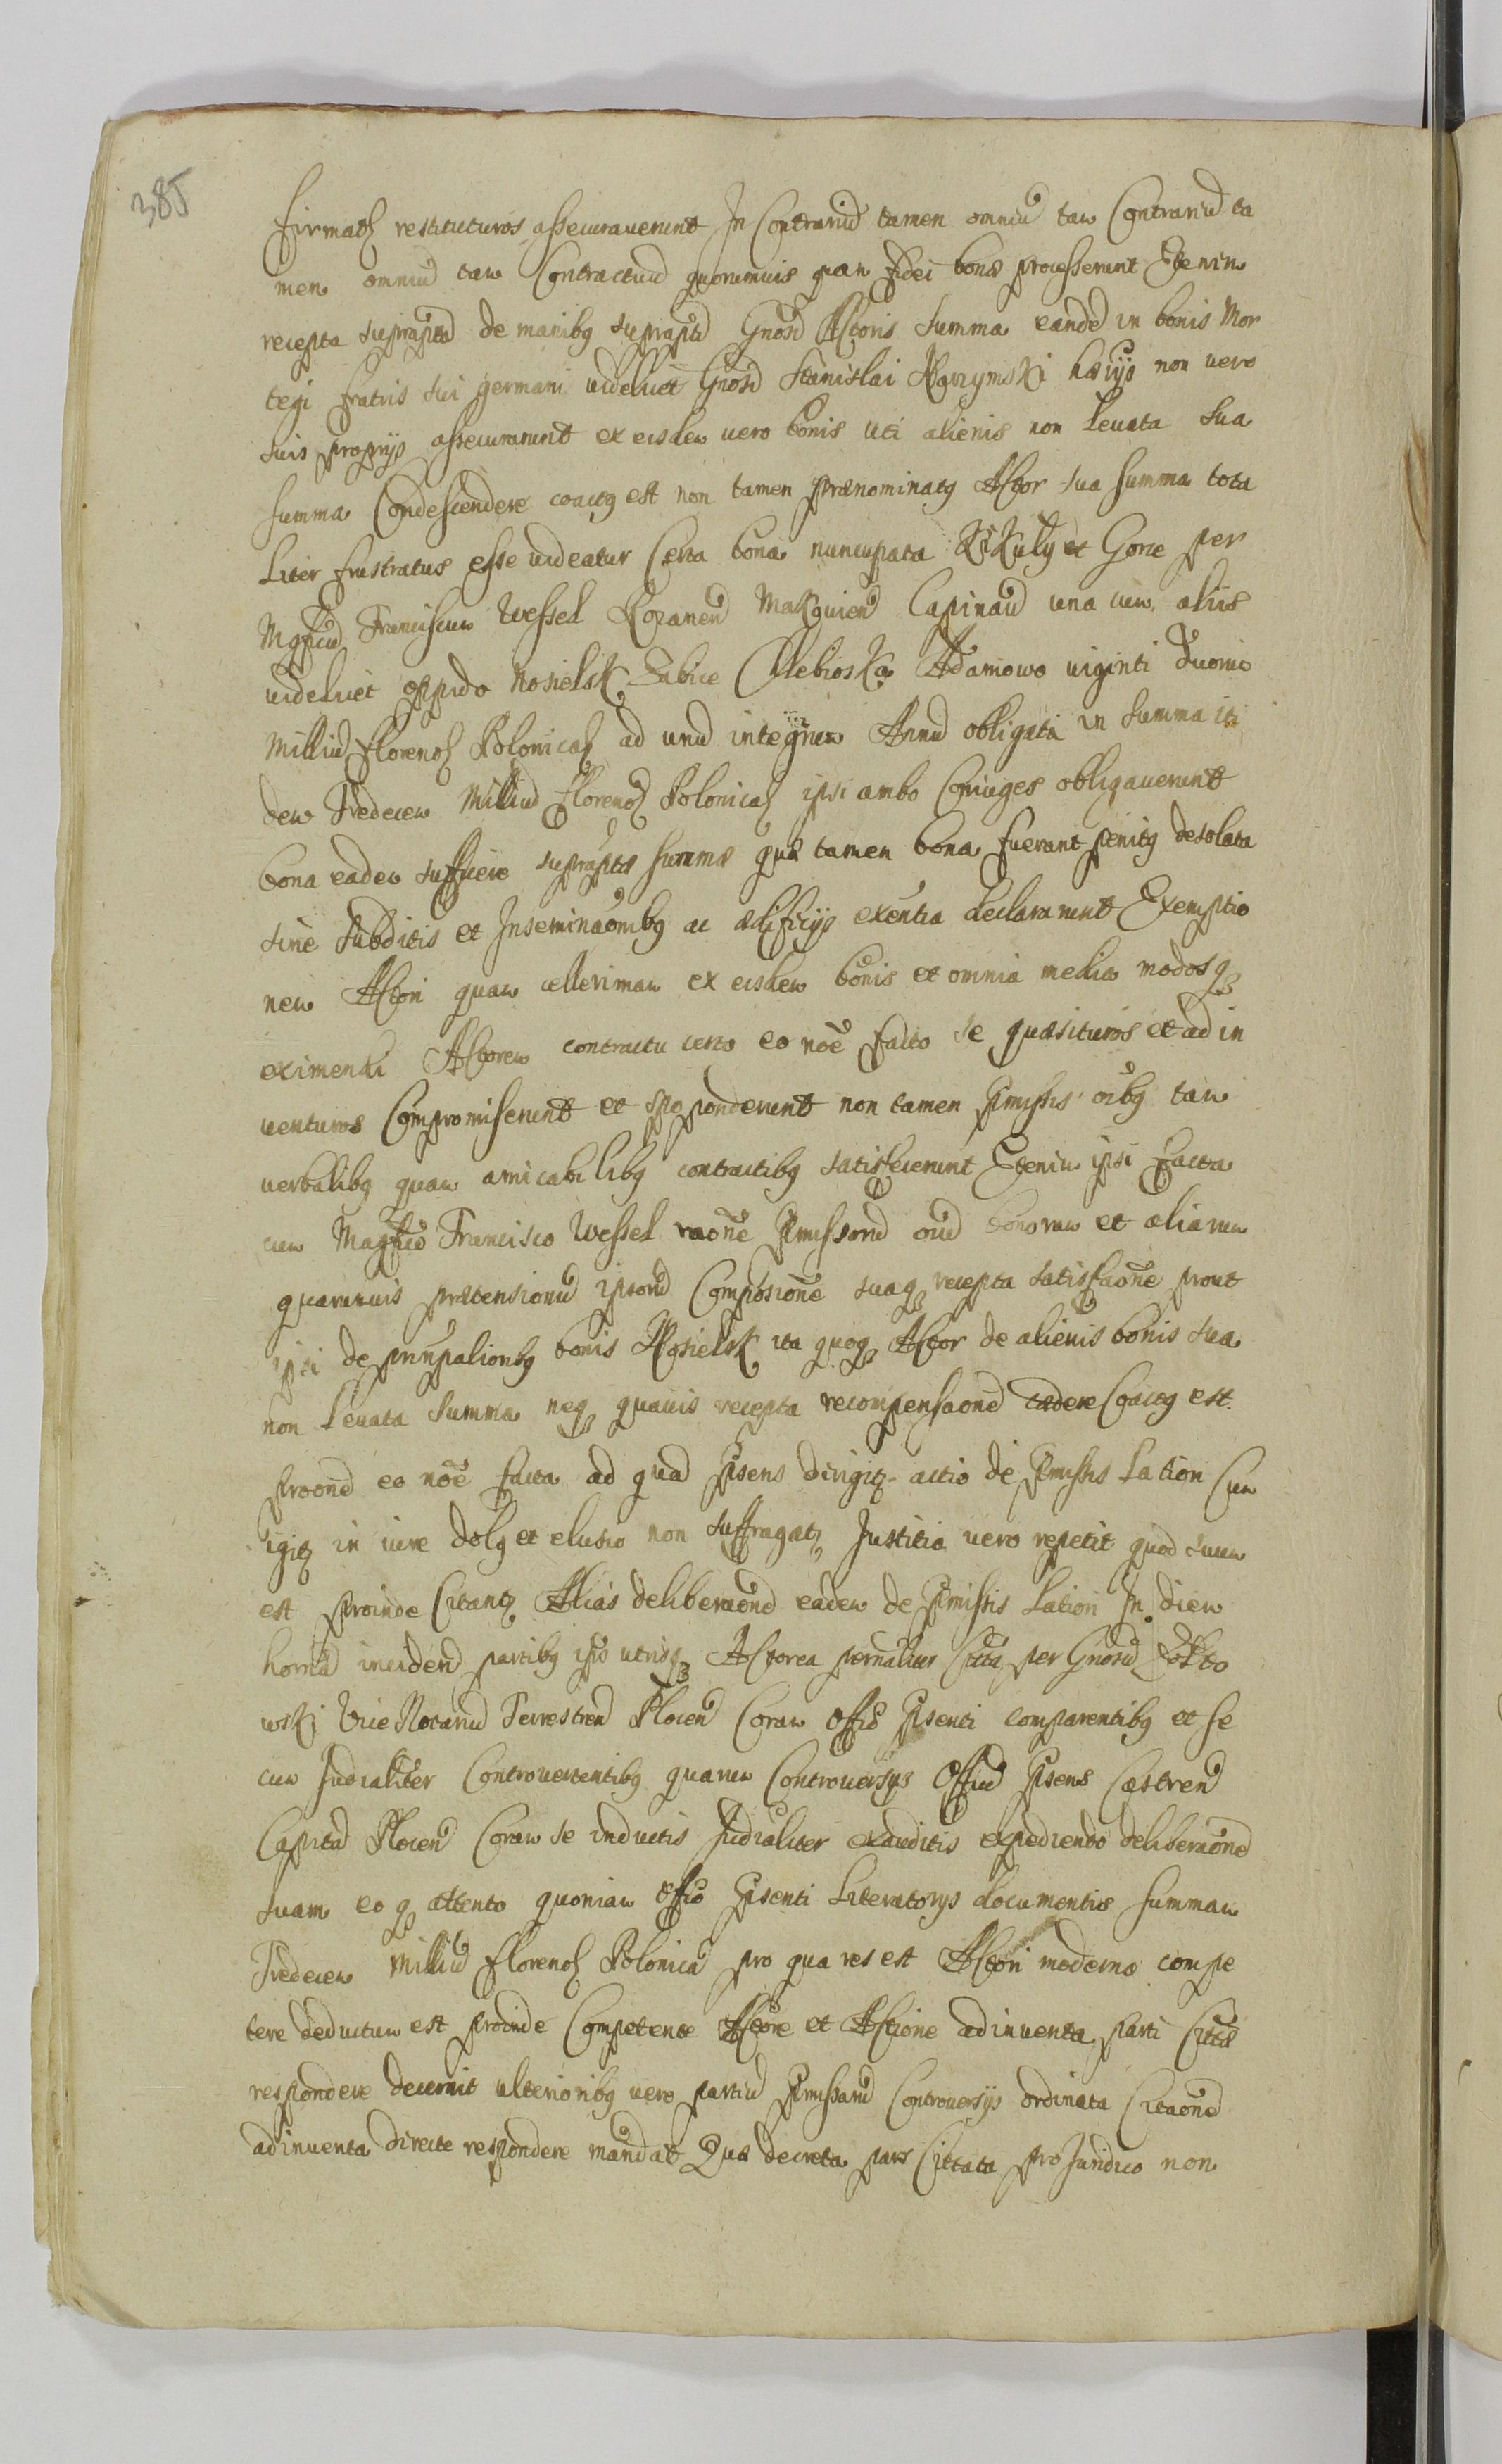 385
firmatʒ restituturos assecuraverunt In Contrariũ tamen omniũ tam Contrariũ ta
men omniũ tam Contractuũ quorumvis quam fidei bonæ processerunt Etenim
recepta supraptã de manibꝰ suprapti Gnosi Actoris summa eandẽ in bonis Mor
tegi fratris sui germani videlicet Gnosi Stanislai Karzymski hærijs non vero
suis proprijs assecurarunt ex eisdem vero bonis uti alienis non levata sua
summa Condescendere coactꝰ est non tamen prænominatꝰ Actor sua summa tota
liter frustratus esse videatur Certa bona nuncupata Kikuly et Gorie per
Mgficũ Franciscum Wessel Rozanen̄ Makovien̄ Capinaũ una cum aliis
videlicet oppido Nosielsk Lubice Chlebioska Adamowo viginti duomo
Milliũ florenoʒ Polonicaʒ ad unũ integrum Annũ obligata in summa iti
dem Tredecem Milliũ florenoʒ Polonicaʒ ipsi ambo Coniuges obligaverunt
bona eadem sufficere supraptæ summæ quæ tamen bona fuerant penitꝰ desolata
sine subditis et Inseminaõnibꝰ ac ædificijs exentia declararunt Exemptio
nem Actori quam cellerimam ex eisdem bonis et omnia media modosqʒ
eximendi Actorem contractu certo eo noẽ facto se quæsituros et ad in
venturos Compromiserunt et spoponderunt non tamen præmissis oĩbꝰ tam
verbalibꝰ quam amicabilibꝰ contractibꝰ satisfecerunt Etenim ipsi facta
cum Magfico Francisco Wessel raõne præmissorũ oiũ bonorum et aliarum
quarumvis prætensionũ ipsorũ Composiõne suaqʒ recepta satisfaõne prout
ipsi de principalioribꝰ bonis Nosielsk ita quoqʒ Actor de alienis bonis sua
non levata summa neqʒ quavis recepta recompensaõne cædere Coactꝰ est
proõne eo noẽ facta ad quã præsens dirigitʒ actio de præmissis lation Cum
igitʒ in iure dolꝰ et elusio non suffragatʒ Justitia vero repetit quod suum
est proinde Citantʒ Alias deliberaõne eadem de præmissis lation In diem
hornã inciden̄ partibꝰ ipsis utrisqʒ Actorea pernaliter Citta per Gnosũ Zokto
wski Vice Notariũ Terrestrem Plocen̄ Coram Offio præsenti comparentibꝰ et se
cum Judialiter Controvertentibꝰ quarum Controversijs Offiũ præsens Castren̄
Capitaũ Plocen̄ Coram se inductis Judialiter exauditis expediendo deliberaõne
suam eoqʒ attento quoniam Offio præsenti Literatorys documentis summam
Tredecem Milliũ florenoʒ Polonicã pro qua res est Actori moderno compe
tere deductum est proinde Competente Actore et Actione adinventa parti Cittæ
respondere decernit ulterioribꝰ vero partiũ præmissarũ Controversijs ordinata Citaõne
adinventa directe respondere mandat Quæ decreta pars Cittata pro Juridico non